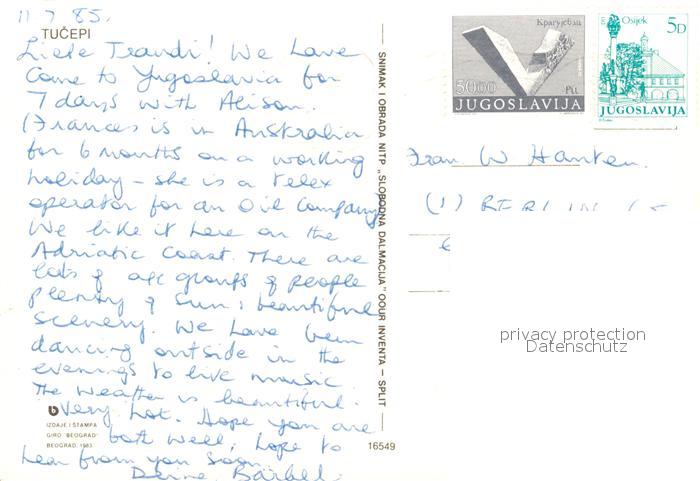 11 7 85.
TUČEPI
Liebe Traudi! We have
come to Yugoslavia for
7 days with Alison.
(Frances is in Australia
for 6 months on a working
holiday - she is a telex
operator for an oil company)
We like it here on the
Adriatic coast. There are
lots of age groups of people
plenty of sun: beautiful
scenery. We have been
dancing outside in the
evenings to live music.
The weather is beautiful.
Very hot. Hope you are
both well, hope to
hear from you soon.
Deine Bärbel.
IZDAJE I ŠTAMPA
GIRO "BEOGRAD"
BEOGRAD, 1983.
16549
SNIMAK I OBRADA NITP „SLOBODNA DALMACIJA" OOUR INVENTA — SPLIT
Крагујевац
50.00
Din
JUGOSLAVIJA
Osijek
5D
JUGOSLAVIJA
Frau W Hanken.
(1) BERLIN
privacy protection
Datenschutz